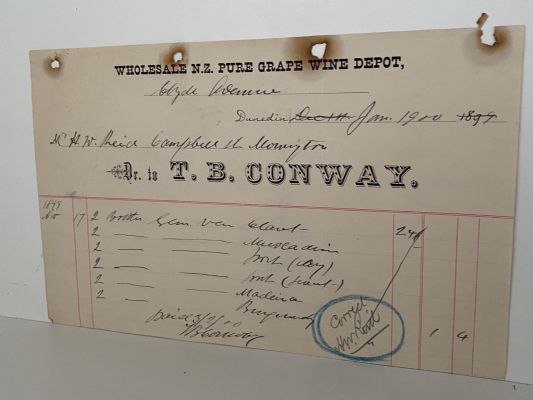 WHOLESALE N.Z. PURE GRAPE WINE DEPOT,
Clyde Avenue
Dunedin, Jan. 1900 1899
Mr H. W. Reid Campbell St Mornington
Dr. to T. B. CONWAY.
1899
Nov 17 2 Bottles Claret 24/
2 — — Muscadine
2 — — Port (dry)
2 — — Port (sweet)
2 — — Madeira
2 — — Burgundy
Paid
T B Conway
Correct
H W Reid
1 4